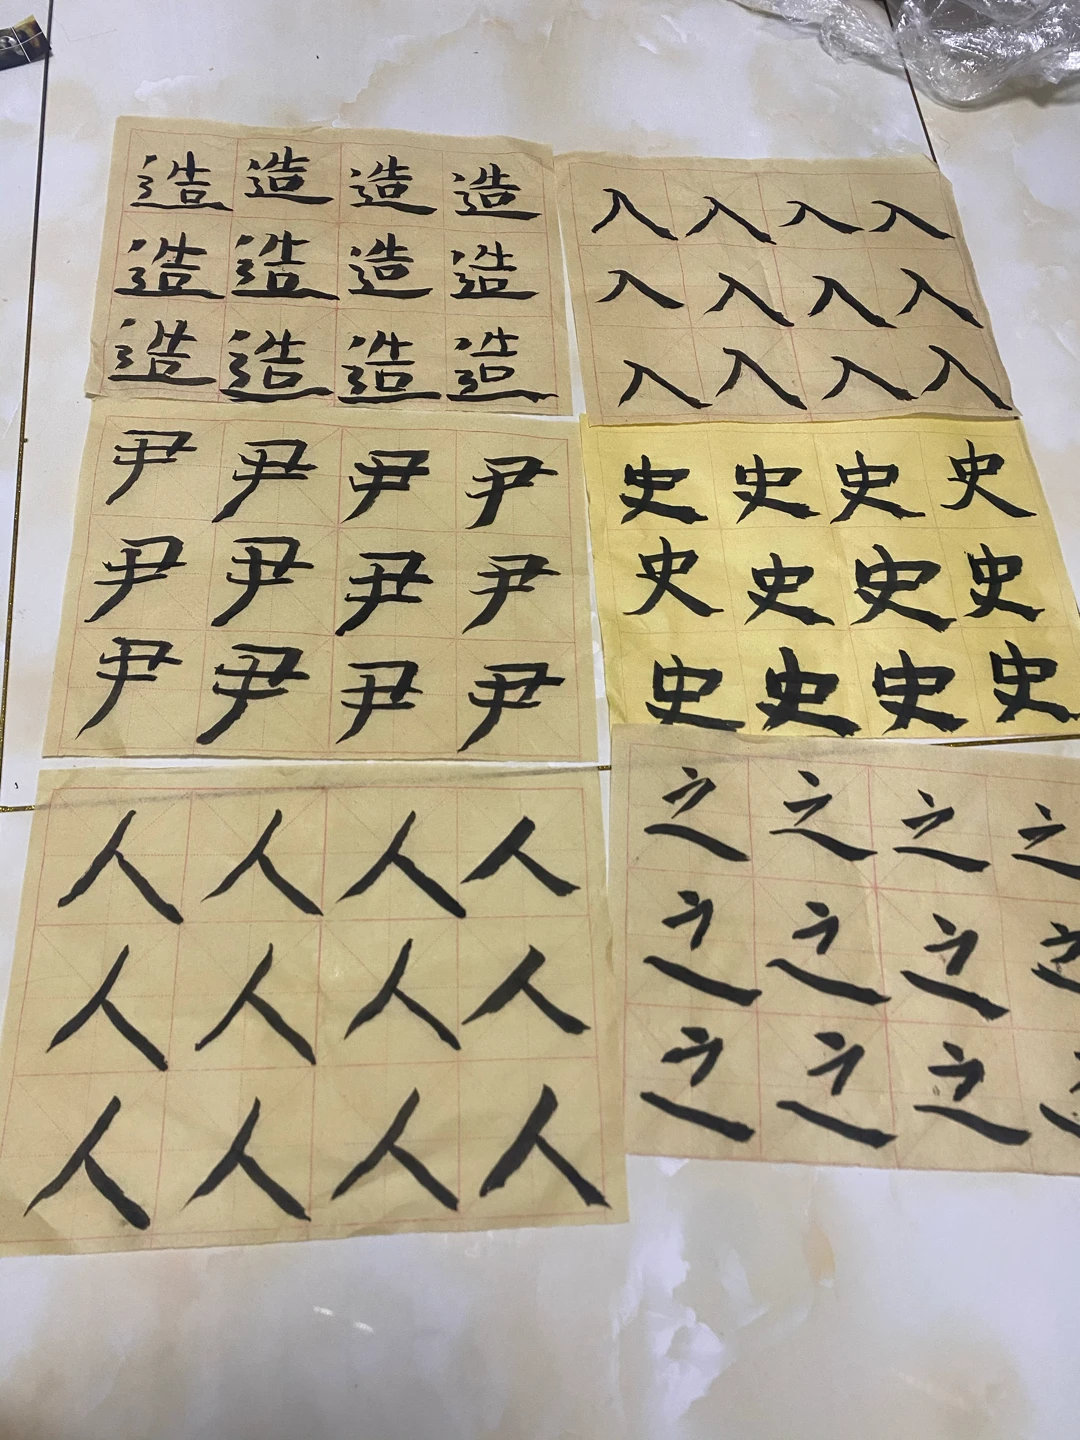 造造造造
造造造造
造造造造
入入入入
入入入入
入入入入
尹尹尹尹
尹尹尹尹
尹尹尹尹
史史史史
史史史史
史史史史
人人人人
人人人人
人人人人
之之之之
之之之之
之之之